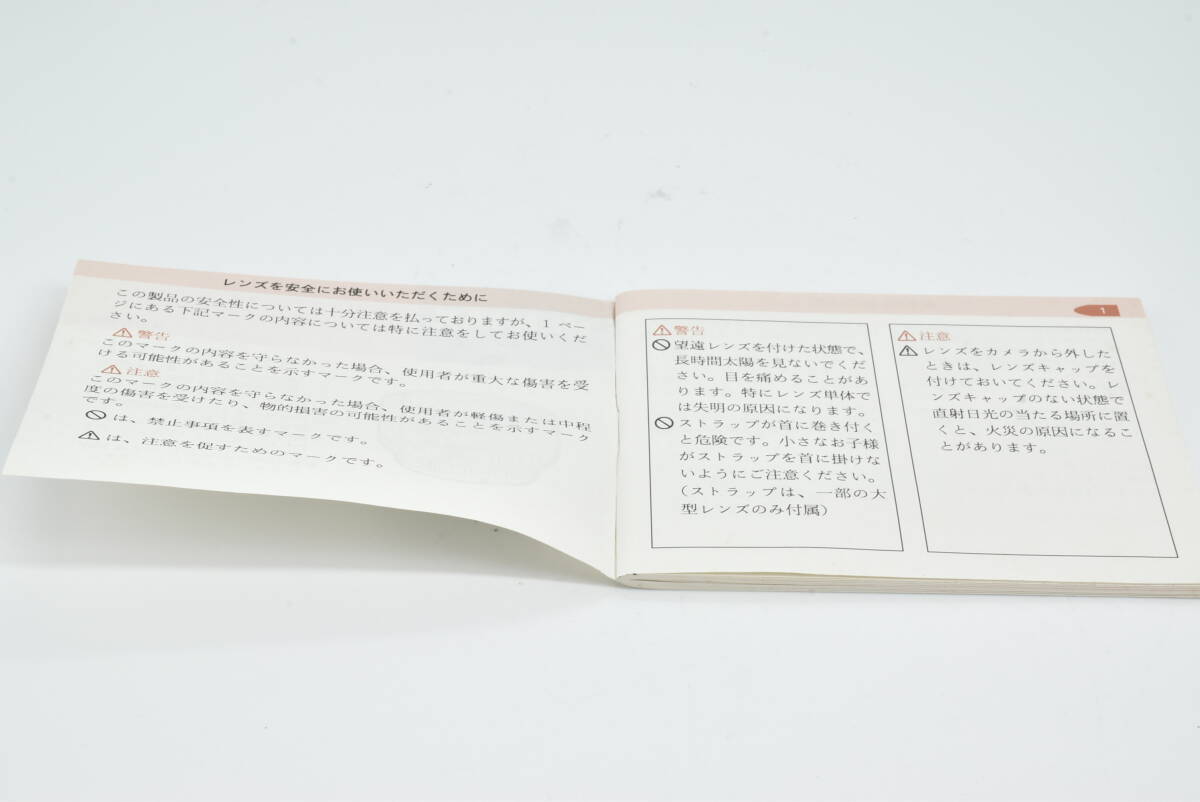 レンズを安全にお使いいただくために
この製品の安全性については十分注意を払っておりますが、1ペー
ジにある下記マークの内容については特に注意をしてお使いくだ
さい。
警告
このマークの内容を守らなかった場合、使用者が重大な傷害を受
ける可能性があることを示すマークです。
注意
このマークの内容を守らなかった場合、使用者が軽傷または中程
度の傷害を受けたり、物的損害の可能性があることを示すマーク
です。
は、禁止事項を表すマークです。
は、注意を促すためのマークです。
1
警告
望遠レンズを付けた状態で、
長時間太陽を見ないでくだ
さい。目を痛めることがあ
ります。特にレンズ単体で
は失明の原因になります。
ストラップが首に巻き付く
と危険です。小さなお子様
がストラップを首に掛けな
いようにご注意ください。
(ストラップは、一部の大
型レンズのみ付属)
注意
レンズをカメラから外した
ときは、レンズキャップを
付けておいてください。レ
ンズキャップのない状態で
直射日光の当たる場所に置
くと、火災の原因になるこ
とがあります。